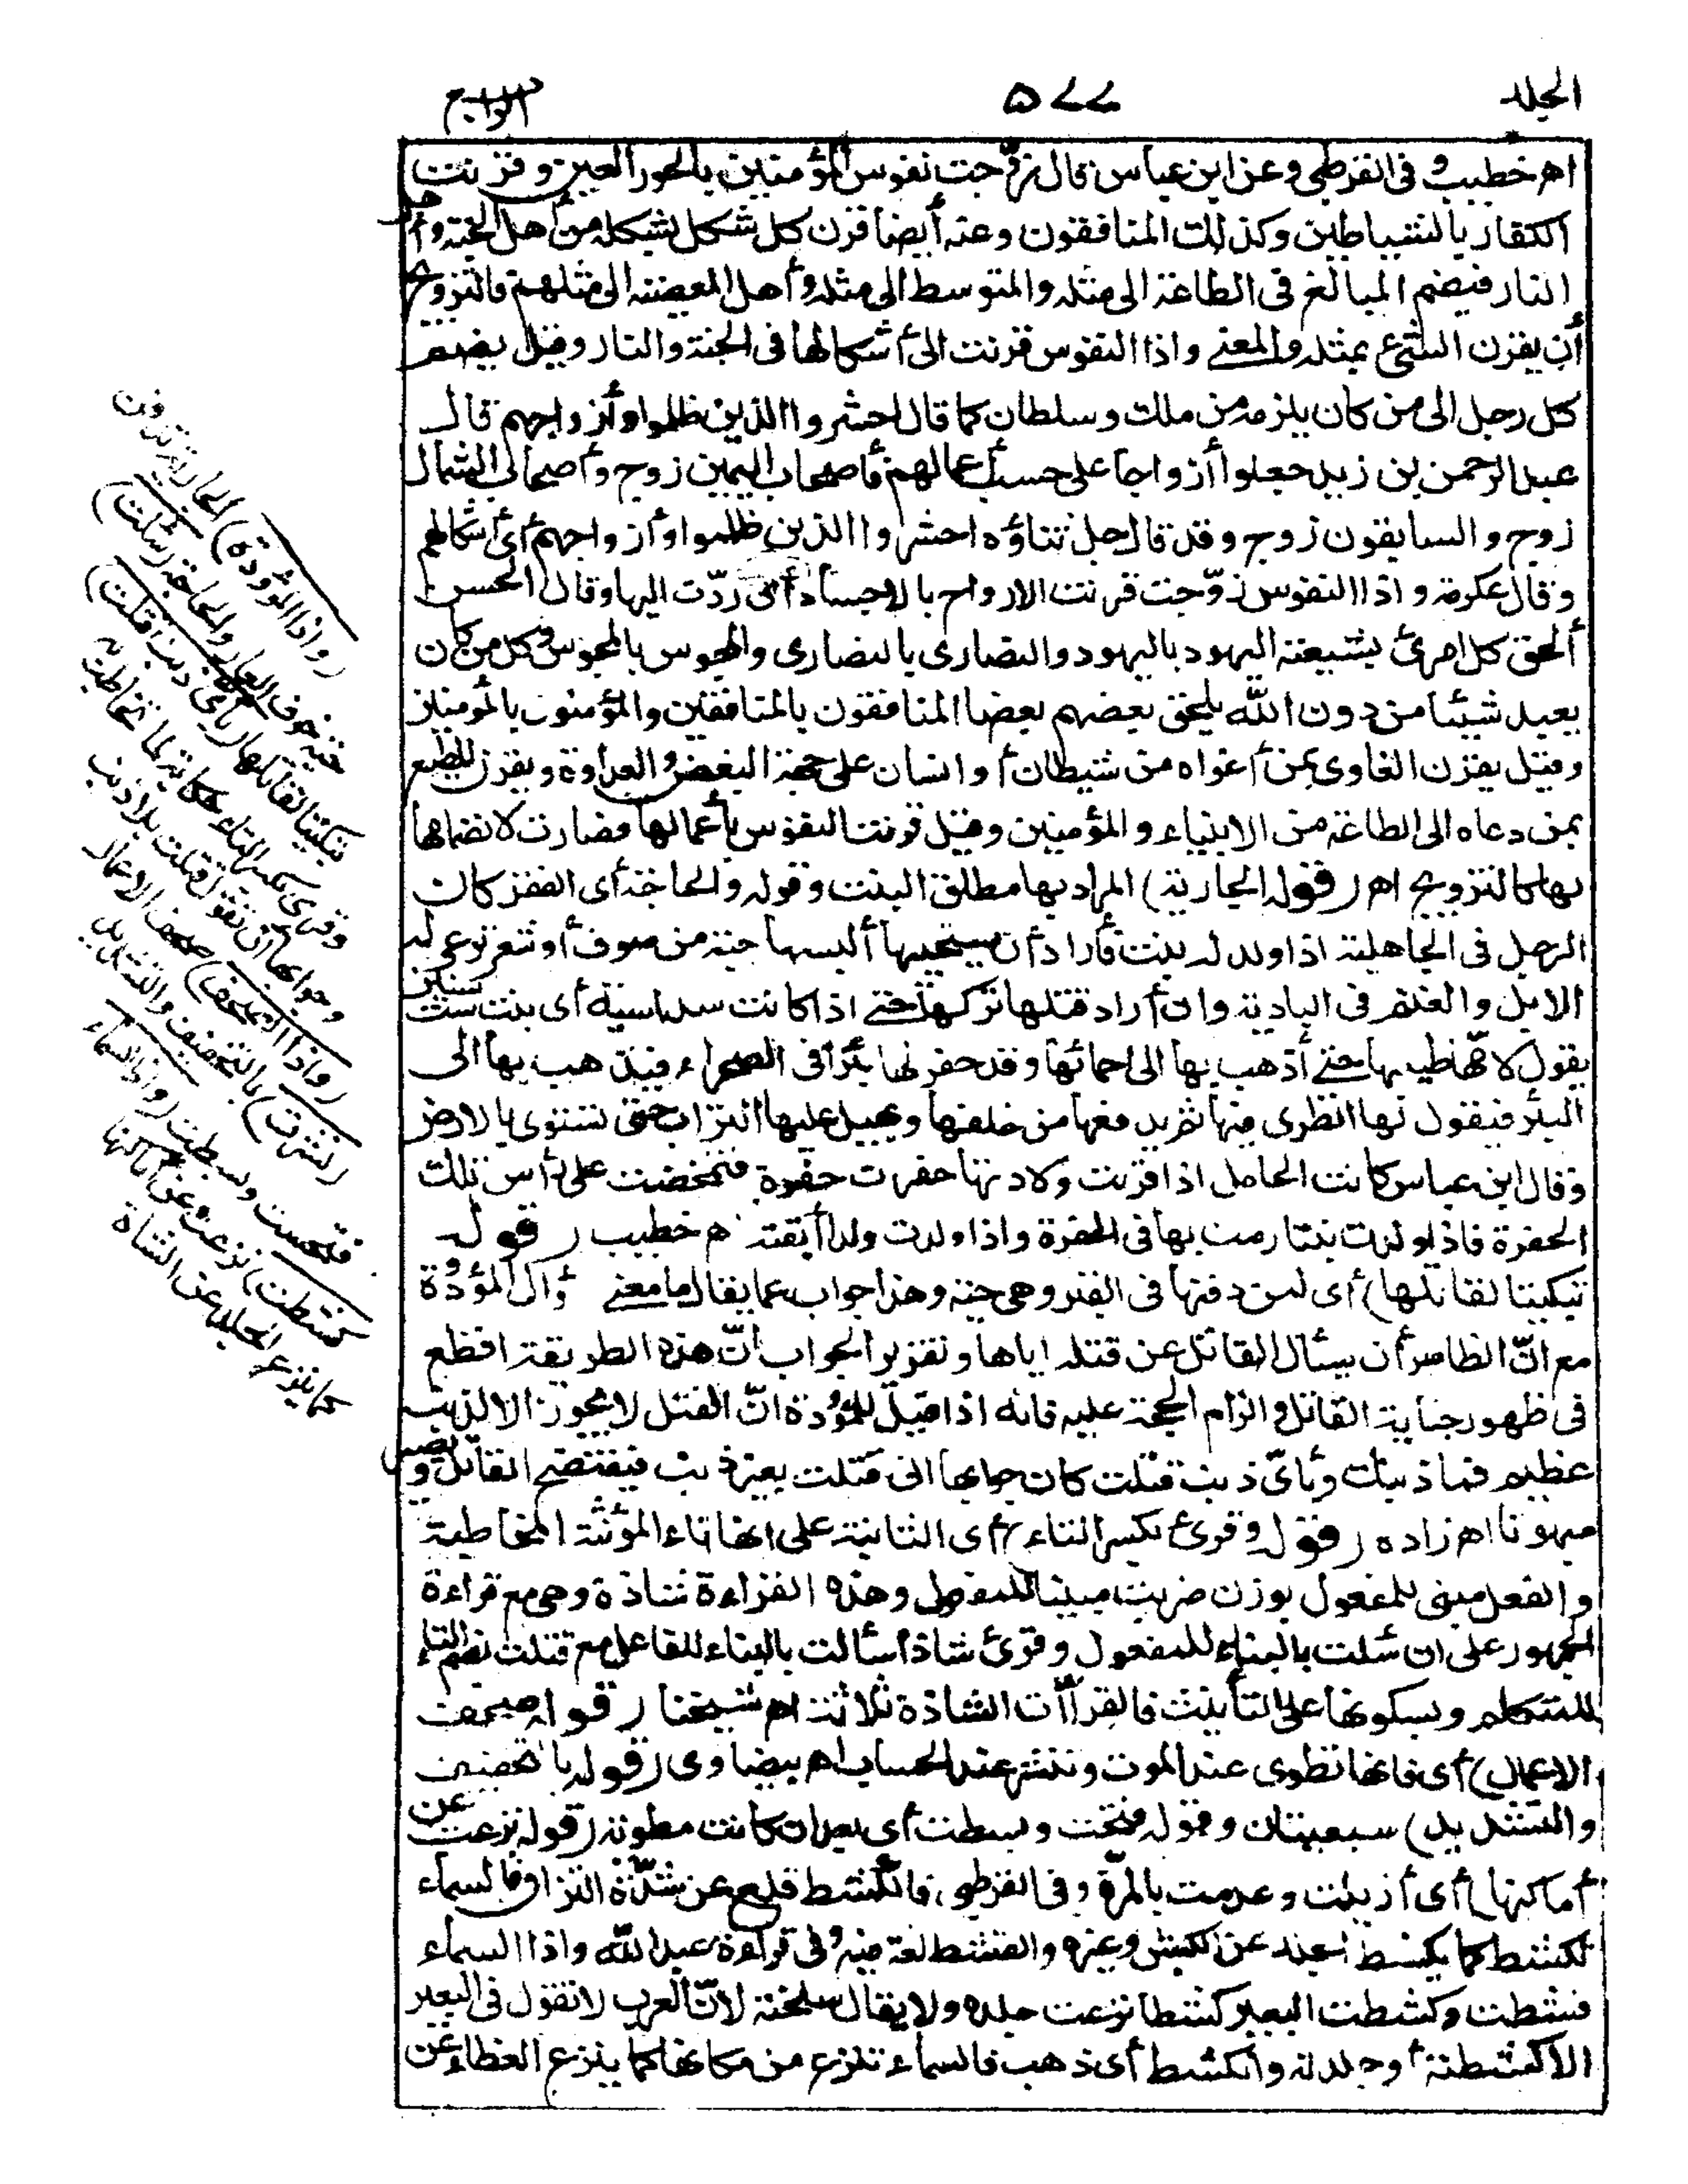 الجلد ٥٧٧ الرابع
اه خطيب وفى القرطبى وعن ابن عباس قال زوّجت نفوس المؤمنين بالحور العين وقرنت
الكفار بالشياطين وكذلك المنافقون وعنه أيضا قرن كل شكل بشكله من أهل الجنة وأهل
النار فيضم المبالغ فى الطاعة الى مثله والمتوسط الى مثله وأهل المعصية الى مثلهم فالتزويج
أن يقرن الشئ بمثله والمعنى واذا النفوس قرنت الى أشكالها فى الجنة والنار وقيل يضم
كل رجل الى من كان يلزمه من ملك وسلطان كما قال احشروا الذين ظلموا وأزواجهم قال
عبد الرحمن بن زيد جعلوا أزواجا على حسب أعمالهم فأصحاب اليمين زوج وأصحاب الشمال
زوج والسابقون زوج وقد قال جل ثناؤه احشروا الذين ظلموا وأزواجهم أى أشكالهم
وقال عكرمة واذا النفوس زوّجت قرنت الارواح بالاجساد أى ردّت اليها وقال الحسن
ألحق كل امرئ بشيعته اليهود باليهود والنصارى بالنصارى والمجوس بالمجوس وكل من كان
يعبد شيئا من دون الله يلحق بعضهم ببعض المنافقون بالمنافقين والمؤمنون بالمؤمنين
وقيل يقرن الغاوى بمن أغواه من شيطان أو انسان على جهة البغض والعداوة ويقرن المطيع
بمن دعاه الى الطاعة من الانبياء والمؤمنين وقيل قرنت النفوس بأعمالها فصارت لانضمامها
بها كالتزويج اه (قوله الجارية) المراد بها مطلق البنت وقوله والحاجة أى الفقر كان
الرجل فى الجاهلية اذا ولد له بنت فأراد أن يستحييها ألبسها جبة من صوف أو شعر ترعى له
الابل والغنم فى البادية وان أراد قتلها تركها حتى اذا كانت سداسية أى بنت ست سنين
يقول لامّها طيبيها حتى أذهب بها الى احمائها وقد حفر لها بئرا فى الصحراء فيذهب بها الى
البئر فيقول لها انظرى فيها ثم يدفعها من خلفها ويهيل عليها التراب حتى تستوى بالارض
وقال ابن عباس كانت الحامل اذا قربت ولادتها حفرت حفرة فتمخضت على رأس تلك
الحفرة فاذا ولدت بنتا رمت بها فى الحفرة واذا ولدت ولدا أبقته اه خطيب (قوله
تبكيتا لقاتلها) أى لمن دفنها فى القبر وهى حية وهذا جواب عما يقال ما معنى سؤال المؤدة
مع انّ الظاهر أن يسئال القاتل عن قتله اياها وتقرير الجواب انّ هذه الطريقة افظع
فى ظهور جناية القاتل والزام الحجة عليه فانه اذا قيل للمؤدة انّ القتل لا يجوز الا لذنب
عظيم فما ذنبك وبأىّ ذنب قتلت كان جوابها انى قتلت بغير ذنب فيفتضح القاتل ويصير
مبهوتا اه زاده (قوله وقرئ بكسر التاء) أى الثانية على انها تاء المؤنثة المخاطبة
والفعل مبنى للمفعول بوزن ضربت مبنيا للمفعول وهذه القراءة شاذة وهى مع قراءة
الجمهور على ان سئلت بالبناء للمفعول وقرئ شاذا سألت بالبناء للفاعل مع قتلت بضم التاء
للتكلم وبسكونها على التأنيث فالقراآت الشاذة ثلاثة اه شيخنا (قوله صحف
الاعمال) أى فانها تطوى عند الموت وتنشر عند الحساب اه بيضاوى (قوله بالتخفيف
والتشديد) سبعيتان وقوله فتحت وبسطت أى بعد ان كانت مطوية (قوله نزعت عن
أماكنها) أى أزيلت وعدمت بالمرّة وفى القرطبى فالكشط قلع عن شدّة التزاق فالسماء
تكشط كما يكشط الجلد عن الكبش وغيره والقشط لغة فيه وفى قراءة عبد الله واذا السماء
قشطت وكشطت البعير كشطا نزعت جلده ولا يقال سلخته لانّ العرب لا تقول فى البعير
الا كشطته أو جلدته وانكشط أى ذهب فالسماء تنزع من مكانها كما ينزع الغطاء عن
(واذا الموؤدة) الجارية تدفن
حية خوف العار والحاجة (سئلت)
تبكيتا لقاتلها (بأى ذنب قتلت)
وقرئ بكسر التاء حكاية لما تخاطب به
وجوابها أن تقول قتلت بلا ذنب
(واذا الصحف) صحف الاعمال
(نشرت) بالتخفيف والتشديد
فتحت وبسطت (واذا السماء
كشطت) نزعت عن أماكنها
كما ينزع الجلد عن الشاة